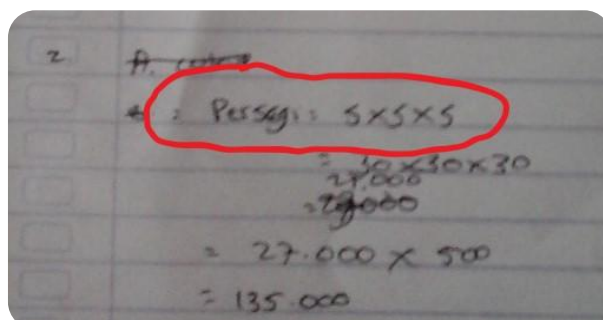 2 A.
= Persegi = 5×5×5
= 30×30×30
27.000
= 000
= 27.000 × 500
= 135.000